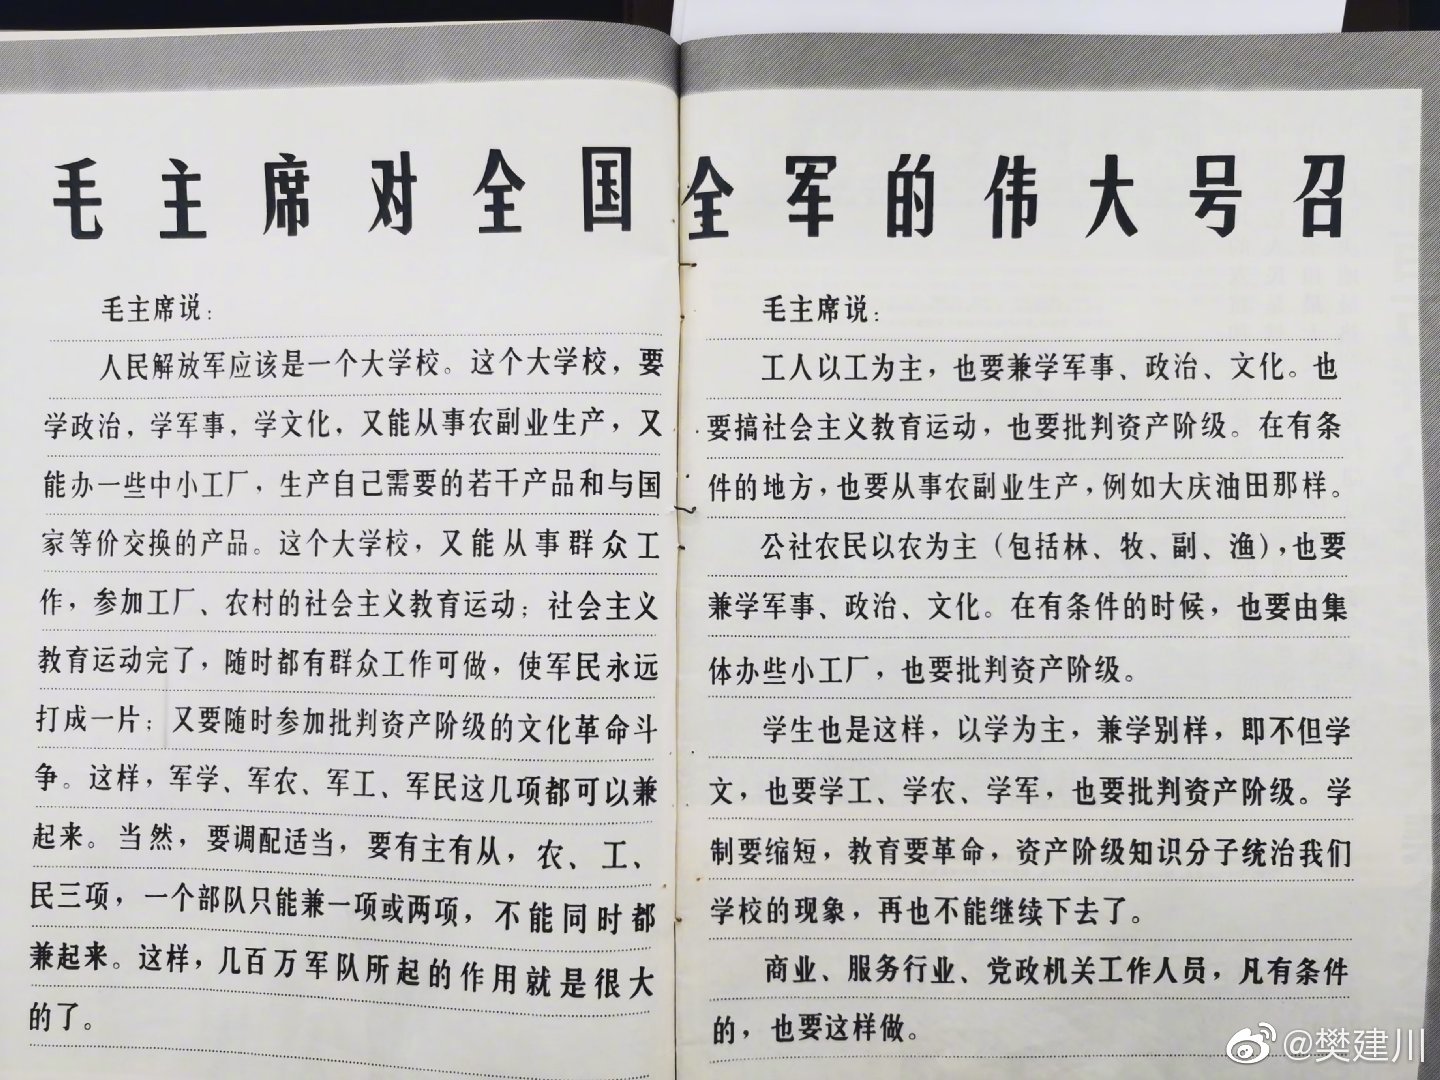 毛主席对全国全军的伟大号召
毛主席说：
人民解放军应该是一个大学校。这个大学校，要
学政治，学军事，学文化，又能从事农副业生产，又
能办一些中小工厂，生产自己需要的若干产品和与国
家等价交换的产品。这个大学校，又能从事群众工
作，参加工厂、农村的社会主义教育运动；社会主义
教育运动完了，随时都有群众工作可做，使军民永远
打成一片；又要随时参加批判资产阶级的文化革命斗
争。这样，军学、军农、军工、军民这几项都可以兼
起来。当然，要调配适当，要有主有从，农、工、
民三项，一个部队只能兼一项或两项，不能同时都
兼起来。这样，几百万军队所起的作用就是很大
的了。
毛主席说：
工人以工为主，也要兼学军事、政治、文化。也
要搞社会主义教育运动，也要批判资产阶级。在有条
件的地方，也要从事农副业生产，例如大庆油田那样。
公社农民以农为主（包括林、牧、副、渔），也要
兼学军事、政治、文化。在有条件的时候，也要由集
体办些小工厂，也要批判资产阶级。
学生也是这样，以学为主，兼学别样，即不但学
文，也要学工、学农、学军，也要批判资产阶级。学
制要缩短，教育要革命，资产阶级知识分子统治我们
学校的现象，再也不能继续下去了。
商业、服务行业、党政机关工作人员，凡有条件
的，也要这样做。
@樊建川